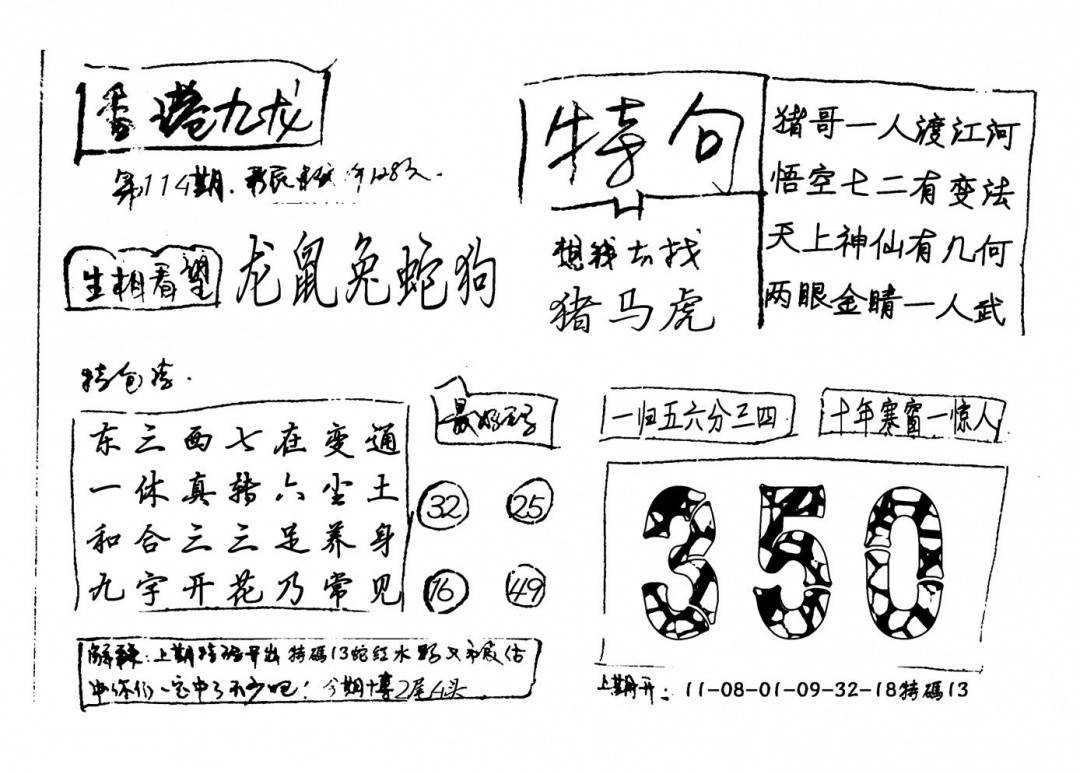 香港九龙
第114期.
特句
想我去找
猪马虎
猪哥一人渡江河
悟空七二有变法
天上神仙有几何
两眼金睛一人武
生相看望
龙鼠兔蛇狗
特包
东三西七在变通
一休真转六尘土
和合三三足养身
九字开花乃常见
32 25
16 49
一归五六分三四
十年寒窗一惊人
350
解释:上期特码开出特碼13蛇红水
中你们一定中了不少吧!今期博2尾4头
上期开:11-08-01-09-32-18特碼13